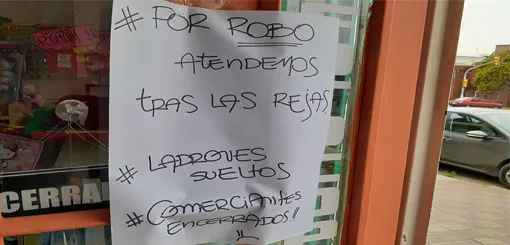 # POR ROBO
ATENDEMOS
TRAS LAS REJAS
# LADRONES
SUELTOS
# COMERCIANTES
ENCERRADOS!!
CERRA